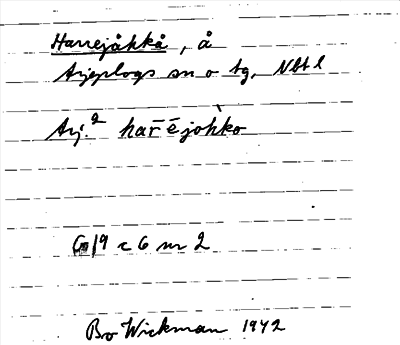 Harrejåkkå, å
Arjeplogs sn o tg, Nbt l
Arj.2 har̄ējohko
G19 c 6 nr 2
Bo Wickman 1942